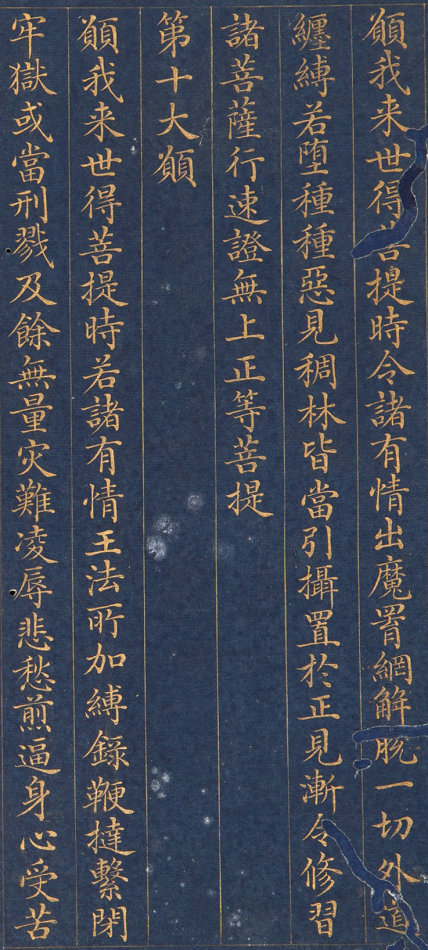 願我来世得菩提時令諸有情出魔罥網解脱一切外道
纏縛若堕種種惡見稠林皆當引攝置於正見漸令修習
諸菩薩行速證無上正等菩提
第十大願
願我来世得菩提時若諸有情王法所加縛錄鞭撻繫閇
牢獄或當刑戮及餘無量灾難凌辱悲愁煎逼身心受苦